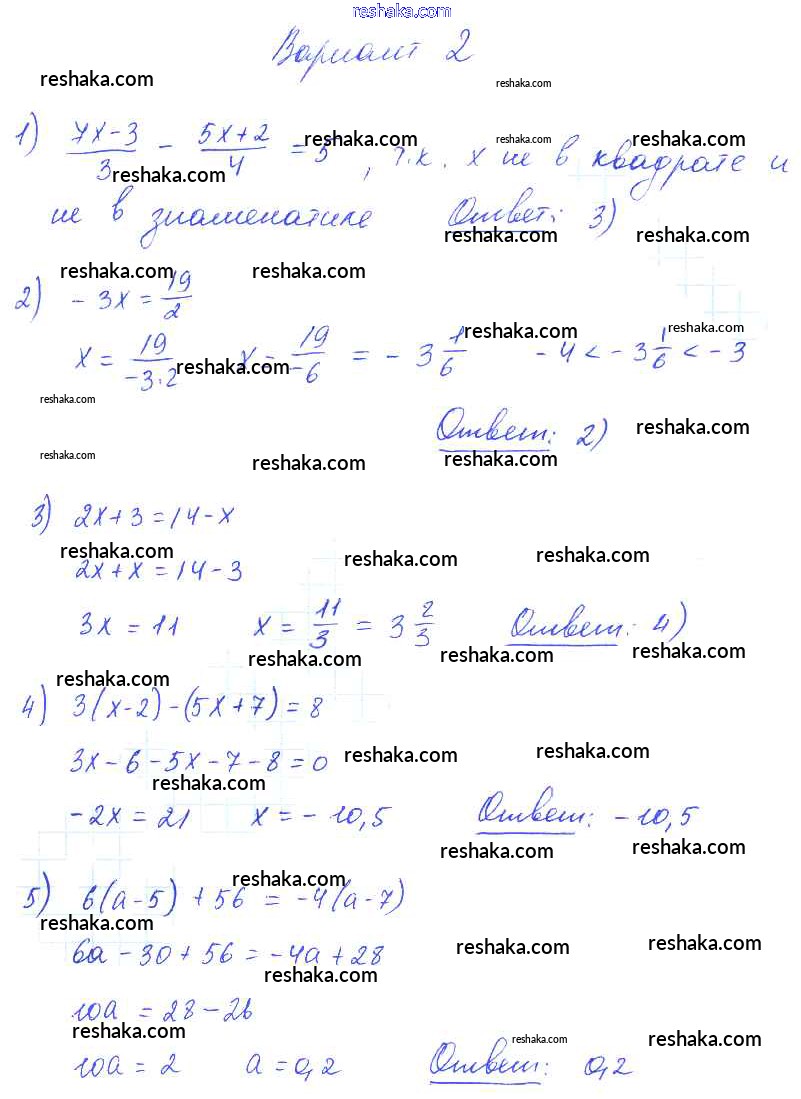 reshaka.com
Вариант 2
reshaka.com reshaka.com
1) (7x-3)/3 - (5x+2)/4 = 5, т.к. x не в квадрате и
reshaka.com reshaka.com reshaka.com
reshaka.com
не в знаменатиле Ответ: 3)
reshaka.com reshaka.com
reshaka.com reshaka.com
2) -3x = 19/2
x = 19/(-3·2) x = 19/(-6) = -3 1/6 -4 < -3 1/6 < -3
reshaka.com reshaka.com reshaka.com
reshaka.com
Ответ: 2)
reshaka.com
reshaka.com reshaka.com reshaka.com
3) 2x+3=14-x
reshaka.com reshaka.com reshaka.com
2x+x=14-3
3x = 11 x = 11/3 = 3 2/3 Ответ: 4)
reshaka.com reshaka.com reshaka.com
reshaka.com
4) 3(x-2)-(5x+7)=8
3x-6-5x-7-8=0
reshaka.com reshaka.com reshaka.com
-2x = 21 x = -10,5 Ответ: -10,5
reshaka.com reshaka.com
reshaka.com
5) 6(a-5) + 56 = -4(a-7)
reshaka.com
6a-30+56=-4a+28
reshaka.com reshaka.com reshaka.com
10a = 28-26
reshaka.com reshaka.com reshaka.com
10a = 2 a = 0,2 Ответ: 0,2